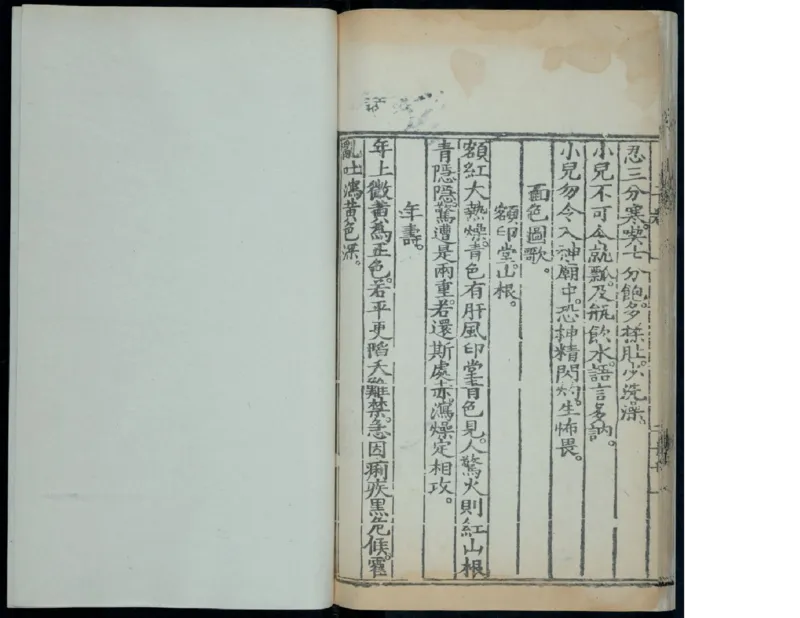 忍三分寒。喫七分飽。多揉肚。少洗澡。
小兒不可令就瓢。及瓶飲水。語言多訥。
小兒勿令入神廟中。恐神精閃灼。生怖畏。
面色圖歌。
額印堂山根。
額紅大熱燥。青色有肝風。印堂青色見。人驚火則紅。山根
青隱隱。驚遭是兩重。若還斯處赤。瀉燥定相攻。
年壽。
年上微黃為正色。若平更陷夭難禁。急因痢疾黑危候。霍
亂吐瀉黃色深。